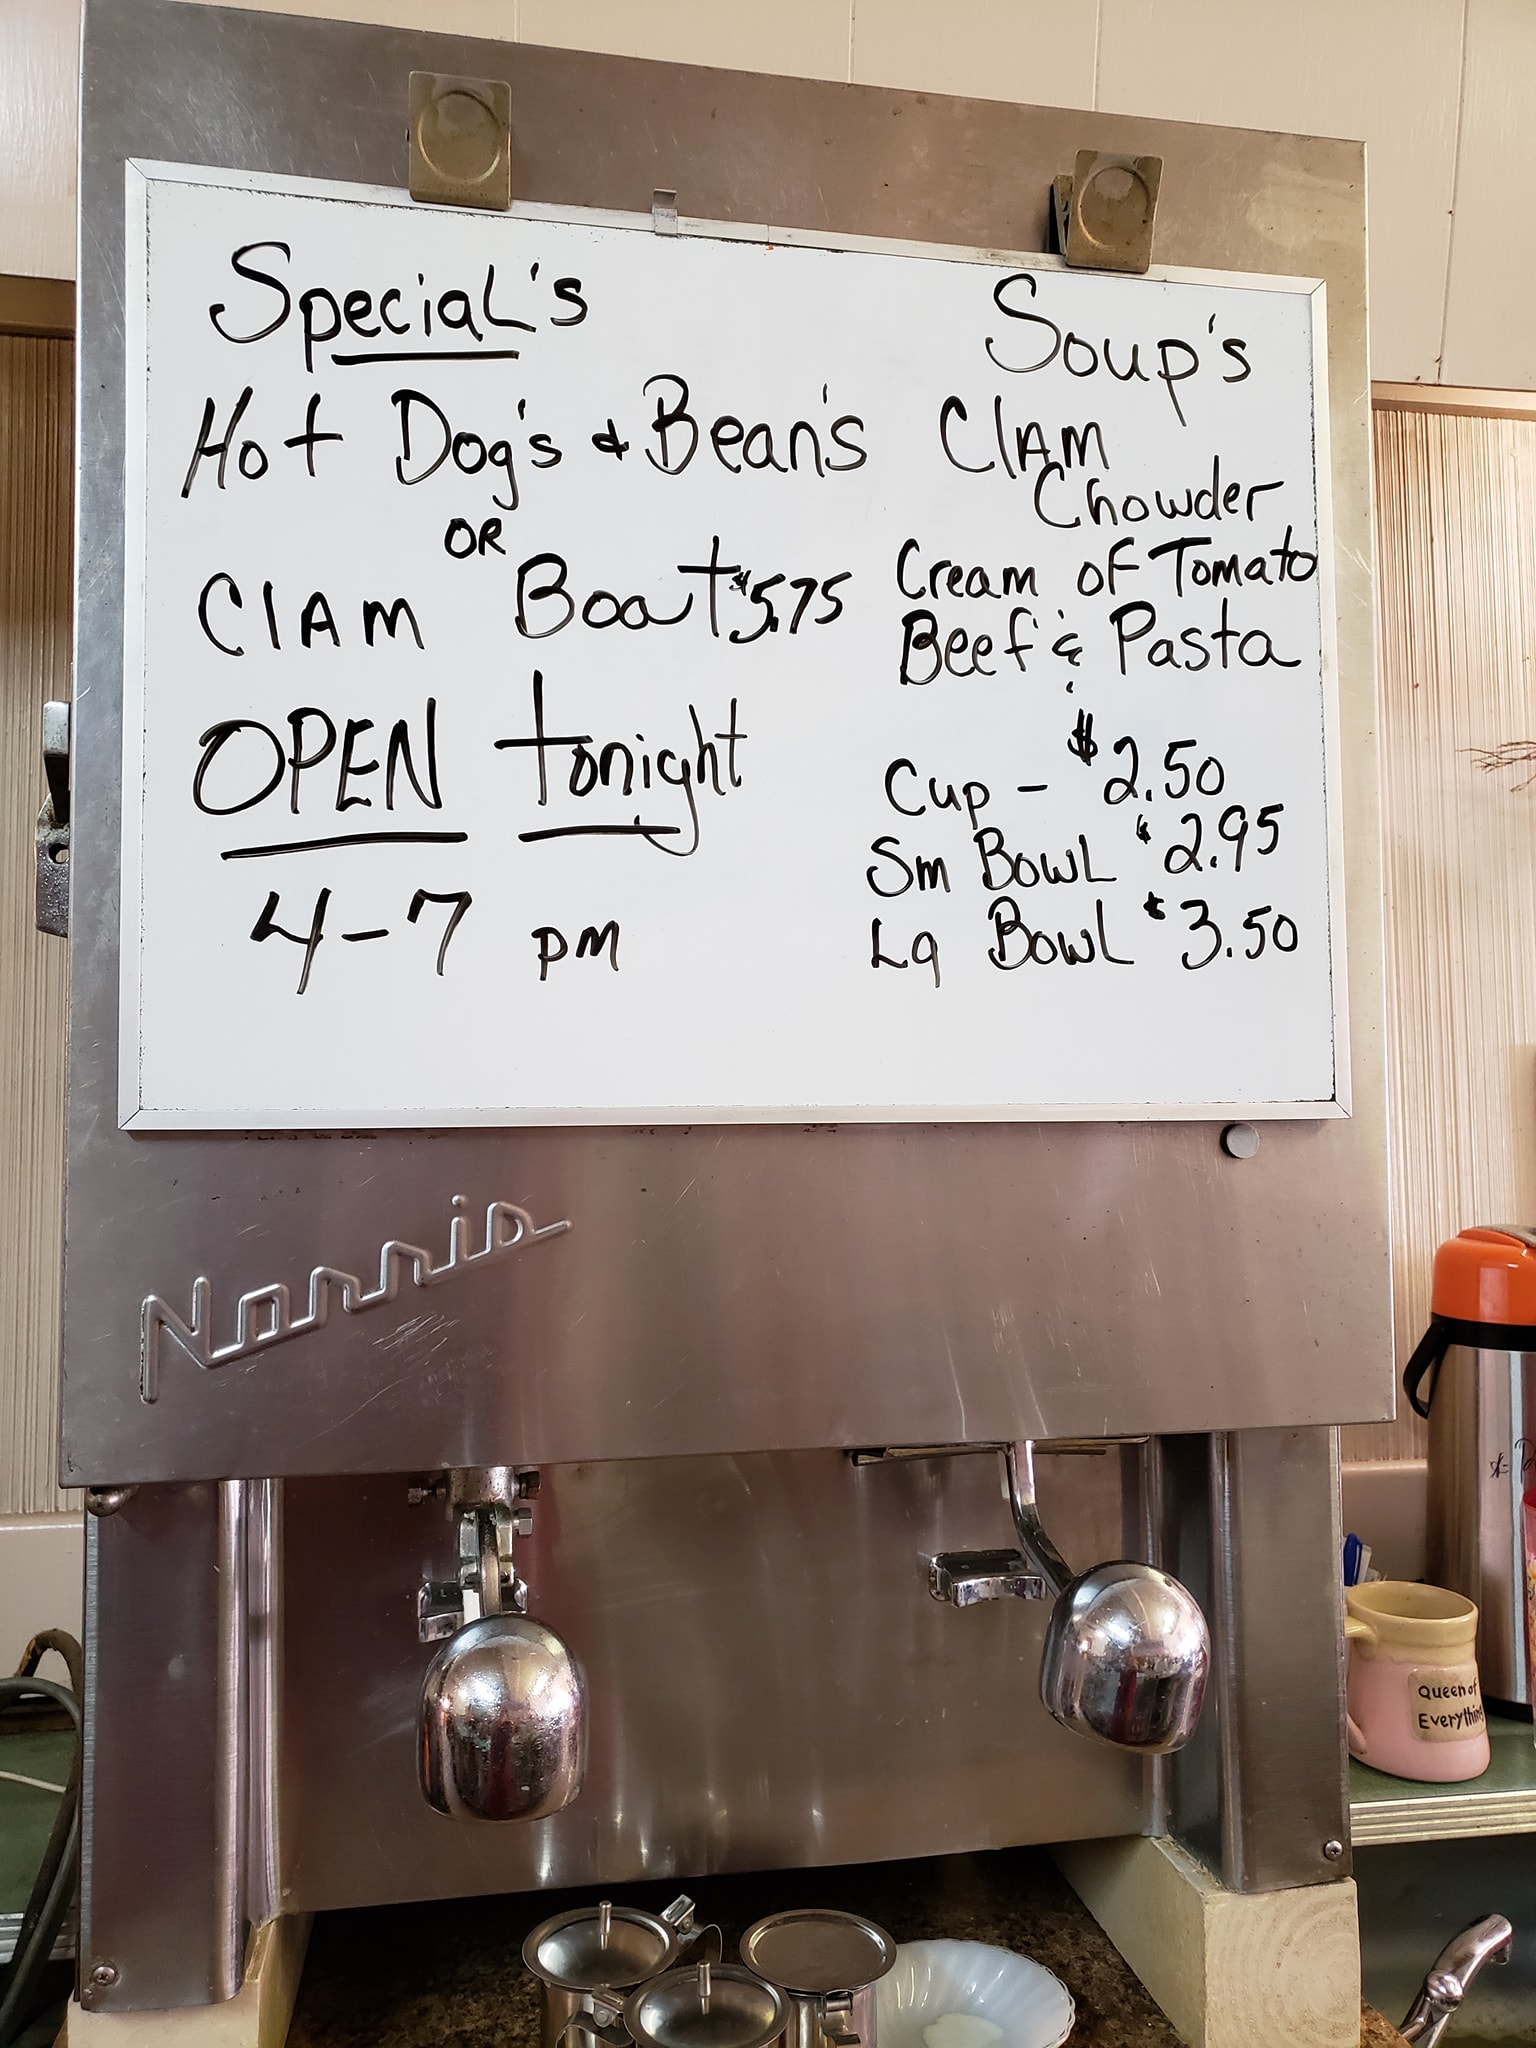 Special's
Hot Dog's & Bean's
OR
Clam Boat $5.75
OPEN tonight
4-7 pm
Soup's
Clam
Chowder
Cream of Tomato
Beef & Pasta
Cup - $2.50
Sm Bowl $2.95
Lg Bowl $3.50
Norris
Queen of
Everything